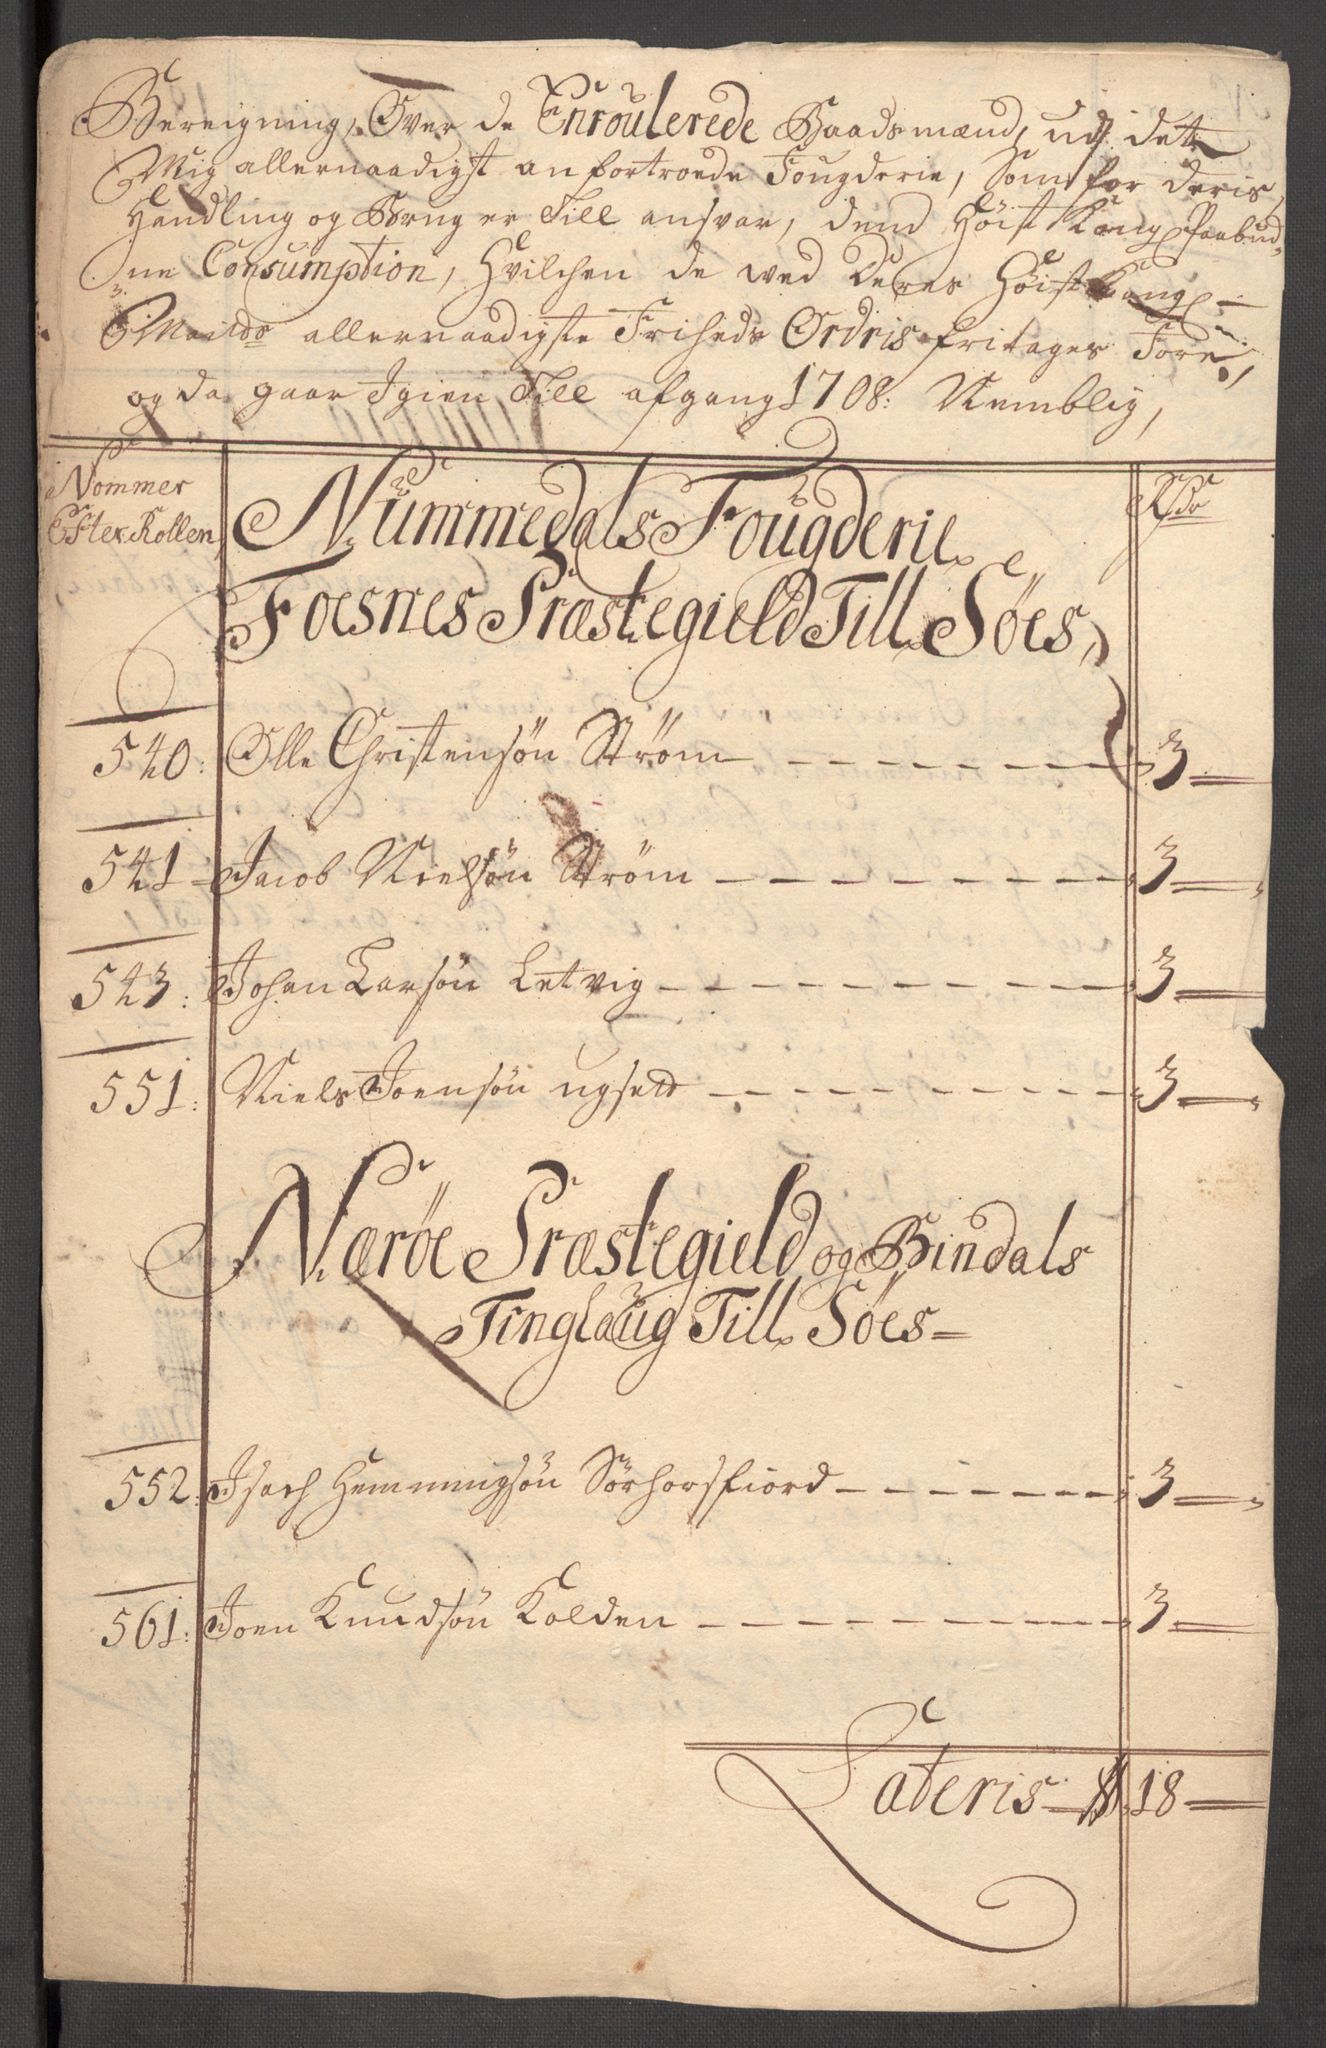 Bereigning, Over de Enroulerede Baadsmænd, ud det
Mig allernaadigst anfortroede Fougderie, Som for deris
Handling og Brug er Till ansvar, dend Höist Kong: Paabud-
ne Consumption, Hvilchen de wed Deres Höist Kong:
Maÿtds allernaadigste Friheds Ordris fritages Fore,
og da gaar Igien Till afgang 1708: Nemblig,
Nommer
Efter Rollen
Nummedals Fougderie
Rdr
Foesnes Præstegield Till Söes,
540: Olle Christensön Ström 3
541 Jacob Nielsön Ström 3
543: Johan Larsön Letvig 3
551: Niels Joensön ugsett 3
Næröe Præstegield og Bindals
Tinglaug Till Söes
552: Isach Hemmingsön Sörhorsfiord 3
561: Joen Knudsön Kolden 3
Lateris 18